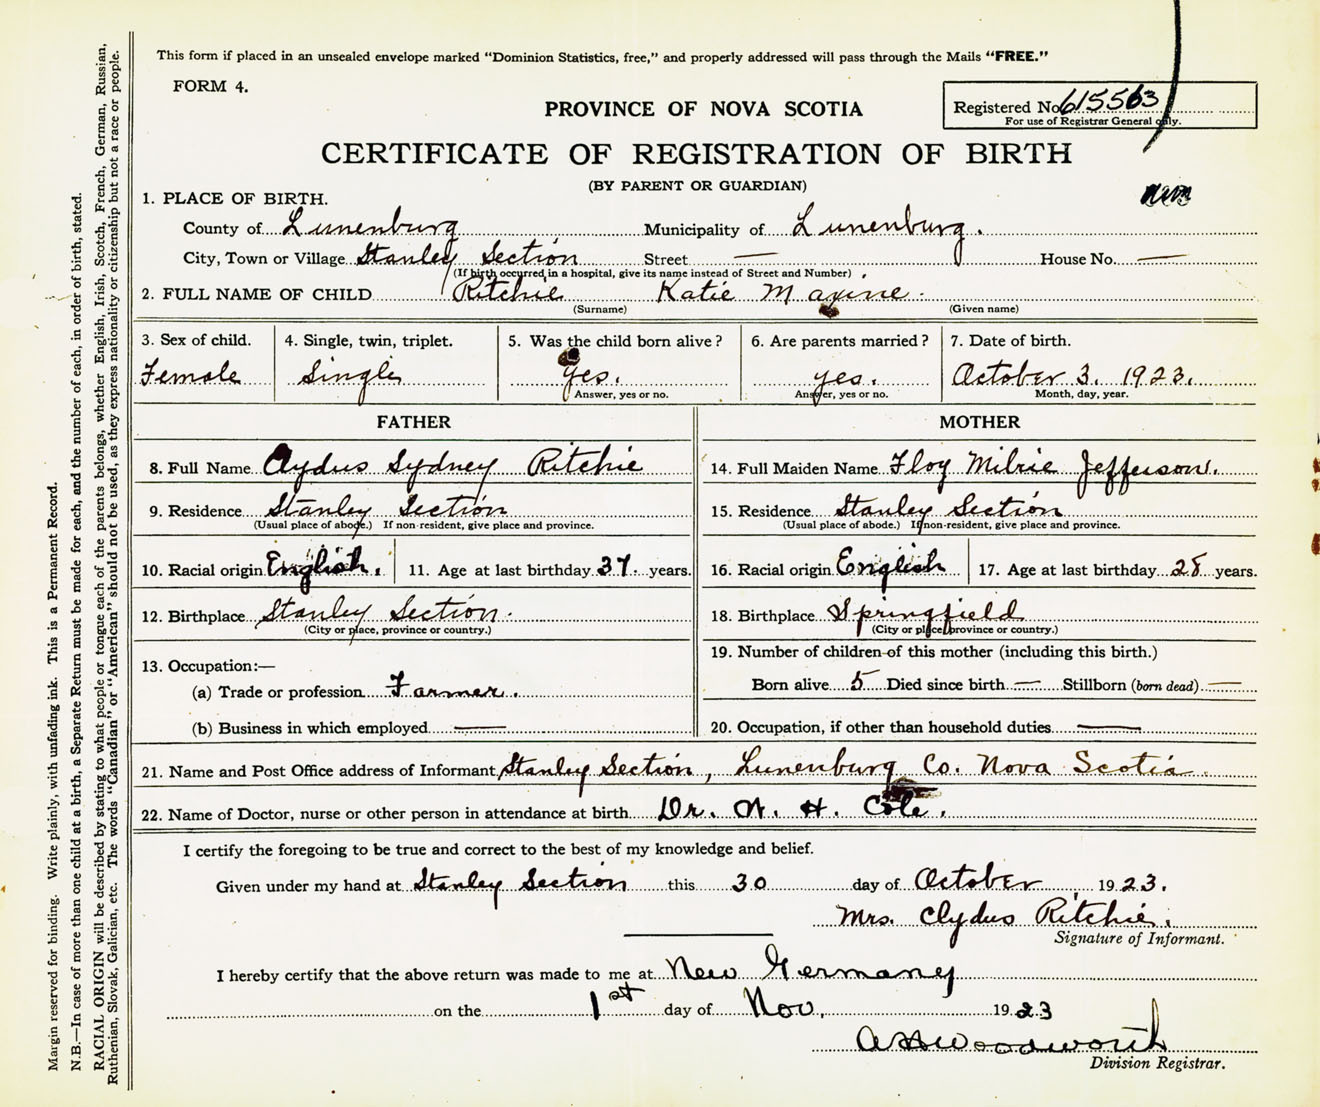 This form if placed in an unsealed envelope marked “Dominion Statistics, free,” and properly addressed will pass through the Mails “FREE.”
FORM 4.
Registered No. 615563
For use of Registrar General only.
PROVINCE OF NOVA SCOTIA
CERTIFICATE OF REGISTRATION OF BIRTH
(BY PARENT OR GUARDIAN)
1. PLACE OF BIRTH.
County of Lunenburg Municipality of Lunenburg.
City, Town or Village Stanley Section Street — House No. —
(If birth occurred in a hospital, give its name instead of Street and Number)
2. FULL NAME OF CHILD Ritchie Katie Maxine.
(Surname) (Given name)
3. Sex of child. 4. Single, twin, triplet. 5. Was the child born alive? 6. Are parents married? 7. Date of birth.
Female Single Yes. yes. October 3. 1923.
Answer, yes or no. Answer, yes or no. Month, day, year.
FATHER
8. Full Name Clydus Sydney Ritchie
9. Residence Stanley Section
(Usual place of abode.) If non-resident, give place and province.
10. Racial origin English. 11. Age at last birthday 37. years.
12. Birthplace Stanley Section.
(City or place, province or country.)
13. Occupation:—
(a) Trade or profession Farmer.
(b) Business in which employed —
MOTHER
14. Full Maiden Name Floy Milrie Jefferson.
15. Residence Stanley Section
(Usual place of abode.) If non-resident, give place and province.
16. Racial origin English 17. Age at last birthday 28 years.
18. Birthplace Springfield
(City or place, province or country.)
19. Number of children of this mother (including this birth.)
Born alive 5 Died since birth — Stillborn (born dead) —
20. Occupation, if other than household duties —
21. Name and Post Office address of Informant Stanley Section, Lunenburg Co. Nova Scotia
22. Name of Doctor, nurse or other person in attendance at birth Dr. W. H. Cole.
I certify the foregoing to be true and correct to the best of my knowledge and belief.
Given under my hand at Stanley Section this 30 day of October 1923.
Mrs. Clydus Ritchie.
Signature of Informant.
I hereby certify that the above return was made to me at New Germany
on the 1st day of Nov. 1923
Woodworth
Division Registrar.
Margin reserved for binding. Write plainly, with unfading ink. This is a Permanent Record.
N.B.—In case of more than one child at a birth, a Separate Return must be made for each, and the number of each, in order of birth, stated.
RACIAL ORIGIN will be described by stating to what people or tongue each of the parents belongs, whether English, Irish, Scotch, French, German, Russian,
Ruthenian, Slovak, Galician, etc. The words “Canadian” or “American” should not be used, as they express nationality or citizenship but not a race or people.